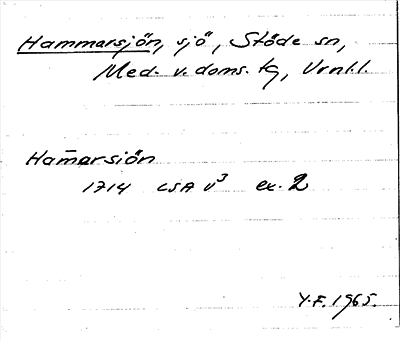 Hammarsjön, sjö, Stöde sn,
Med. v. doms. tg, Vrnl.l.
Ham̄arsiön
1714 LSA V³ ex. 2
Y.F. 1965.